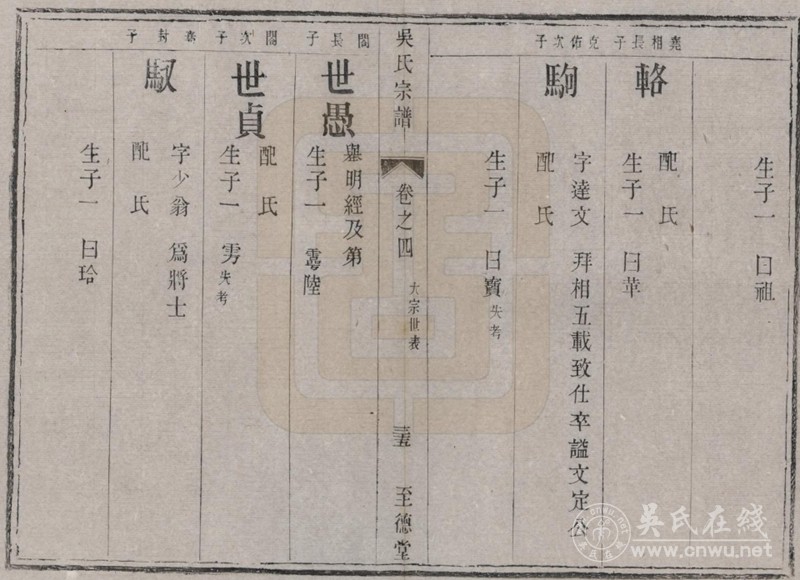 生子一 曰祖
堯相長子
輅
配氏
生子一 曰華
克佑次子
駒
字達文 拜相五載致仕卒謚文定公
配氏
生子一 曰寶失考
吳氏宗譜
卷之四
大宗世表
三五
至德堂
閣長子
世愚
舉明經及第
生子一 雩陸
閣次子
世貞
配氏
生子一 雱失考
泰封子
馭
字少翁 為將士
配氏
生子一 曰玲
吳氏在线
www.cnwu.net